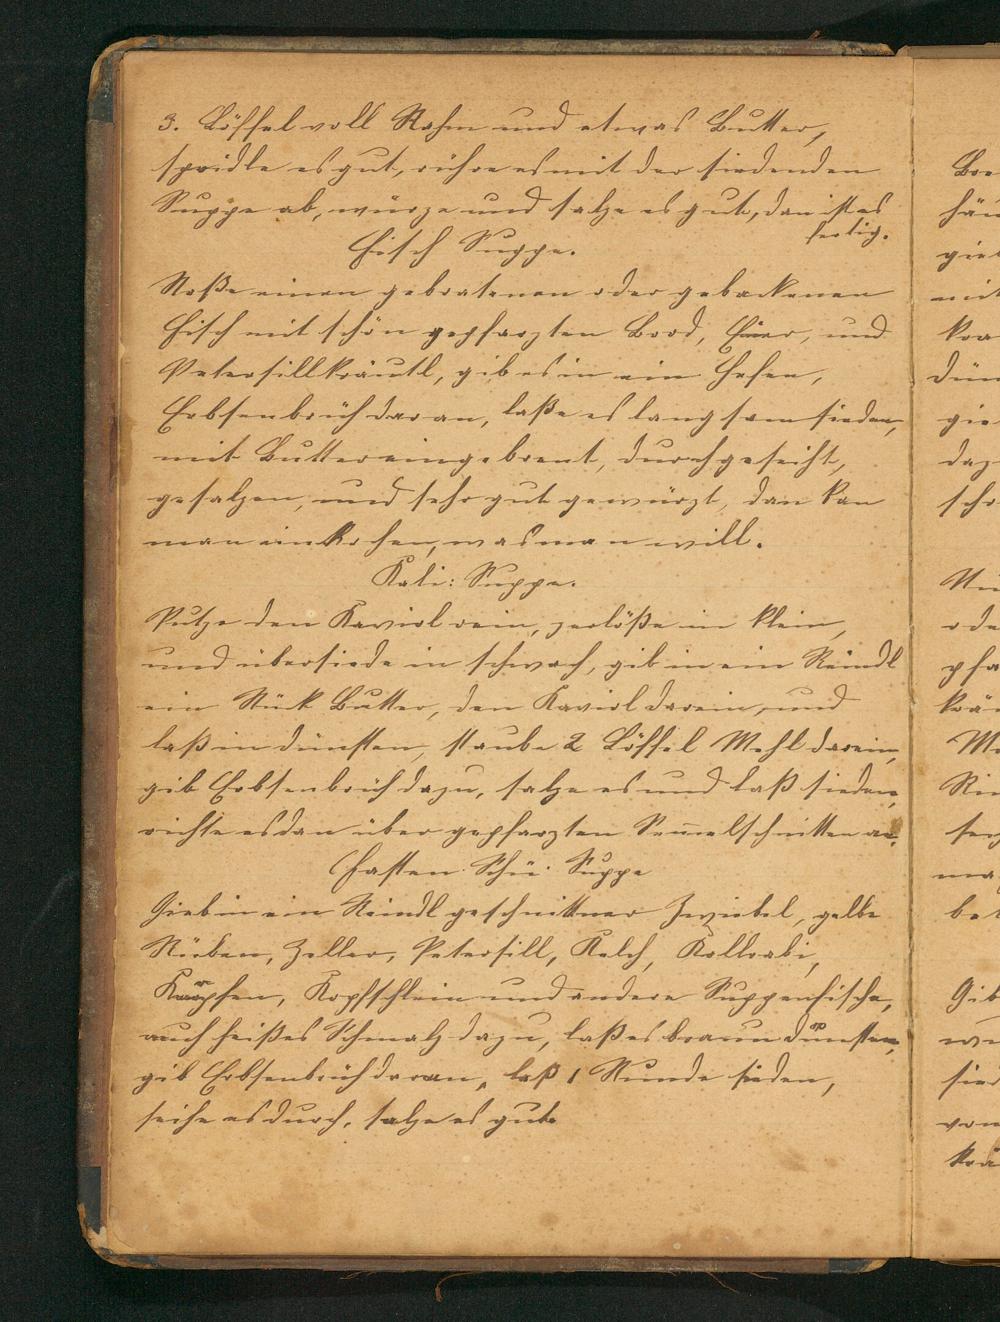 3. Löffel voll Rahm und etwas Butter,
spridle es gut, rühre es mit der siedenden
Suppe ab, würze und salze es gut, dan ist es
fertig.
Fisch Suppe.
Stoße einen gebratenen oder gebackenen
Fisch mit schön gepfarzten Brod, Eier, und
Petersillkräutl, gib es in ein Hafen,
Erbsenbrüh daran, laße es langsam sieden,
mit Butter eingebrent, durchgeseiht,
gesalzen, und sehr gut gewürzt, dan kan
man einkochen, was man will.
Kali: Suppe.
Putze den Kaviol rein, zerlöße in klein,
und übersiede in schwach, gib in ein Reindl
ein Stück Butter, den Kaviol darein, und
laß in dünsten, staube 2 Löffel Mehl darein,
gib Erbsenbrüh dazu, salze es und laß sieden,
richte es dan über gepfarzten Semelschnitten an.
Fasten Schü Suppe
Gieb in ein Reindl geschnittner Zwiebel, gelbe
Rüben, Zeller, Petersill, Kelch, Kollrabi,
Karpfen, Kopfschlein und andere Suppenfische,
auch heißes Schmalz dazu, laß es braun dünsten,
gib Erbsenbrüh daran, laß 1 Stunde sieden,
seihe es durch, salze es gut.